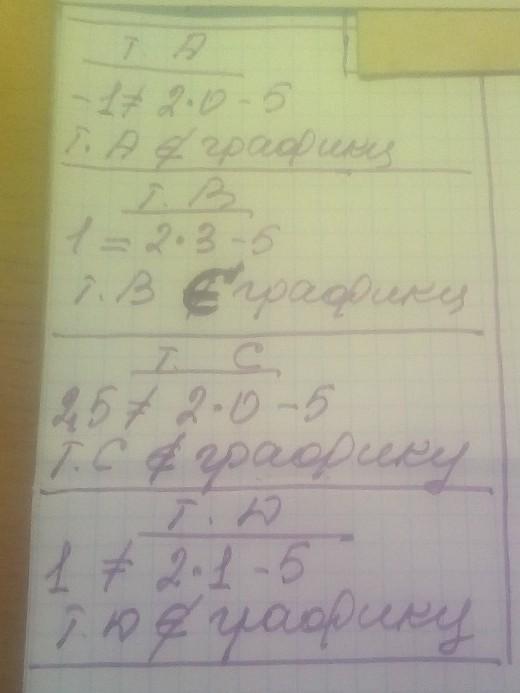 т. А
-1 ≠ 2·0 - 5
т. А ∉ графику
т. В
1 = 2·3 - 5
т. В ∈ графику
т. С
2,5 ≠ 2·0 - 5
т. С ∉ графику
т. D
1 ≠ 2·1 - 5
т. D ∉ графику